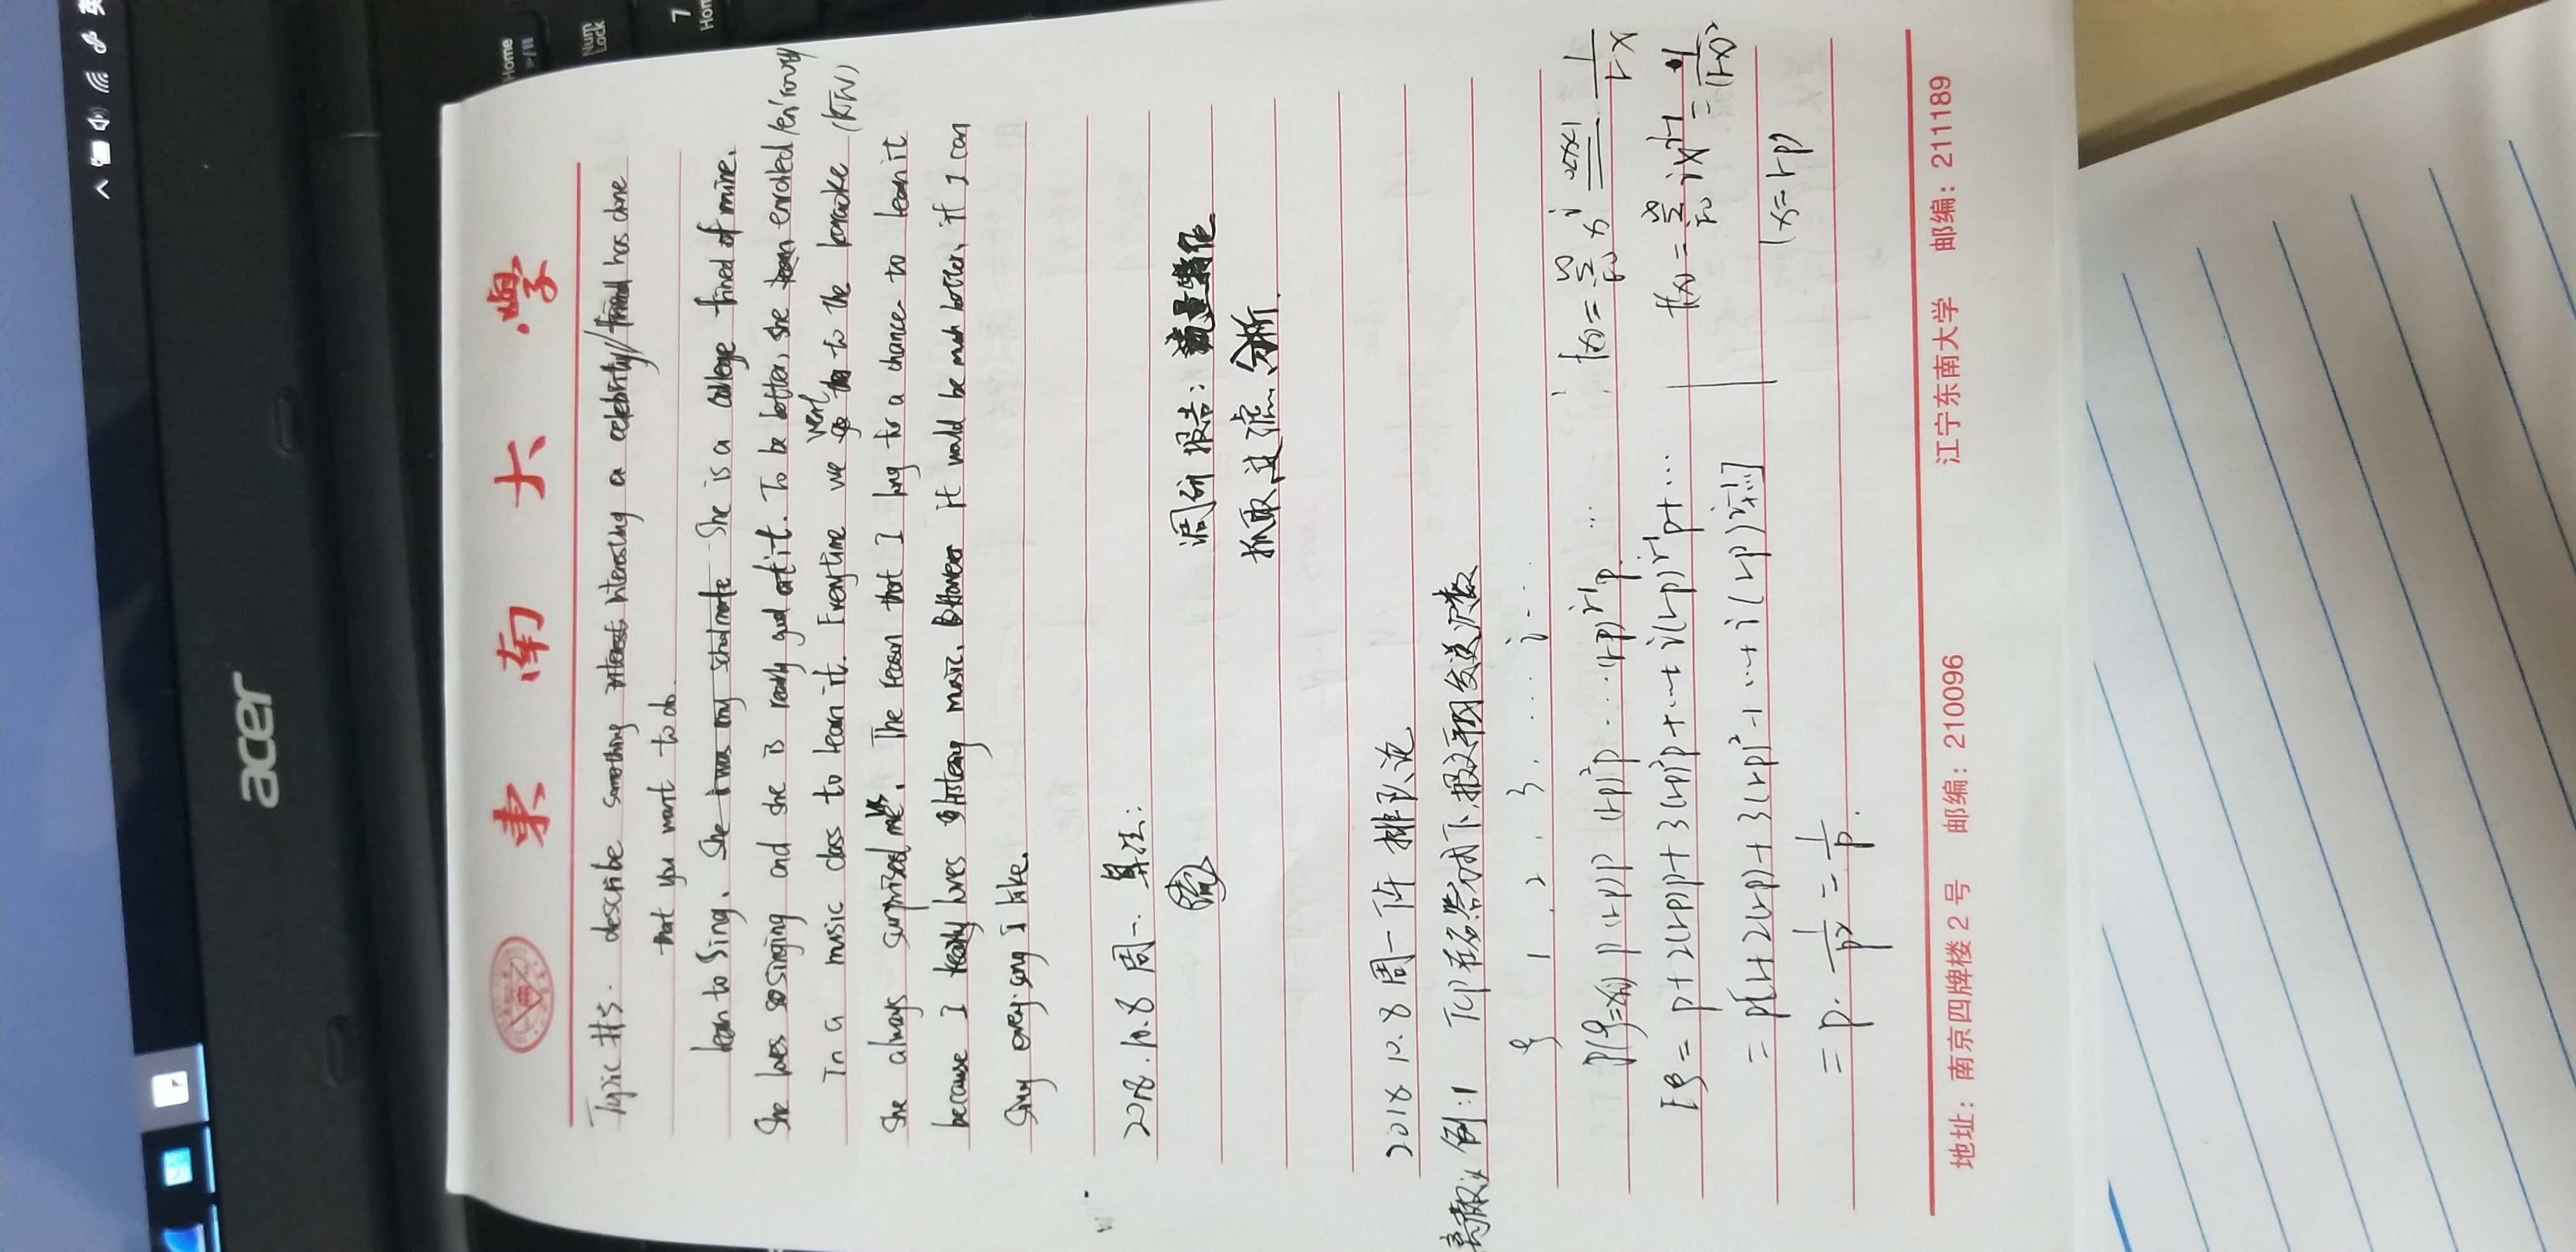 英
acer
Home
Num Lock
7
Hom
東南大學
Topic #5. describe something interest interesting a celebrity/friend has done
that you want to do.
lean to Sing. She is a college frined of mine.
She loves singing and she is really good at it. To be better, she enrolled
In a music class to lean it. Everytime we went to the karaoke (KTV)
She always surprised us. The reason that I long for a chance to lean it
because I loves music. it would be much better, if I can
Sing every song I like.
2018.10.8 周一. 算法:
流
调研报告: 流量特征
抓取、过滤、分析.
2018 10.8 周一下午 排队论
离散: 例:1 TCP在 下,报文平均发送次数
ξ 1, 2, 3, ... i...
P(ξ=xi) p (1-p)p (1-p)²p ... (1-p)^{i-1}p ... f(x) = Σ_{i=0}^{∞} x^i 0<x<1 = 1/(1-x)
Eξ = p+2(1-p)p+3(1-p)²p+...+i(1-p)^{i-1}p+... f'(x) = Σ_{i=0}^{∞} ix^{i-1} = 1/(1-x)²
= p[1+2(1-p)+3(1-p)²+...+i(1-p)^{i-1}+...] (x=1-p)
= p · 1/p² = 1/p.
地址：南京四牌楼2号 邮编：210096 江宁东南大学 邮编：211189